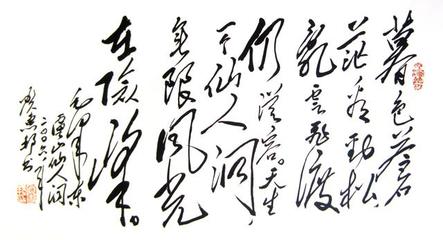 暮色苍
茫看劲松,
亂雲飛渡
仍從容。天生
一个仙人洞,
無限風光
在險峰。
毛泽东
廬山仙人洞
二〇〇六年
书